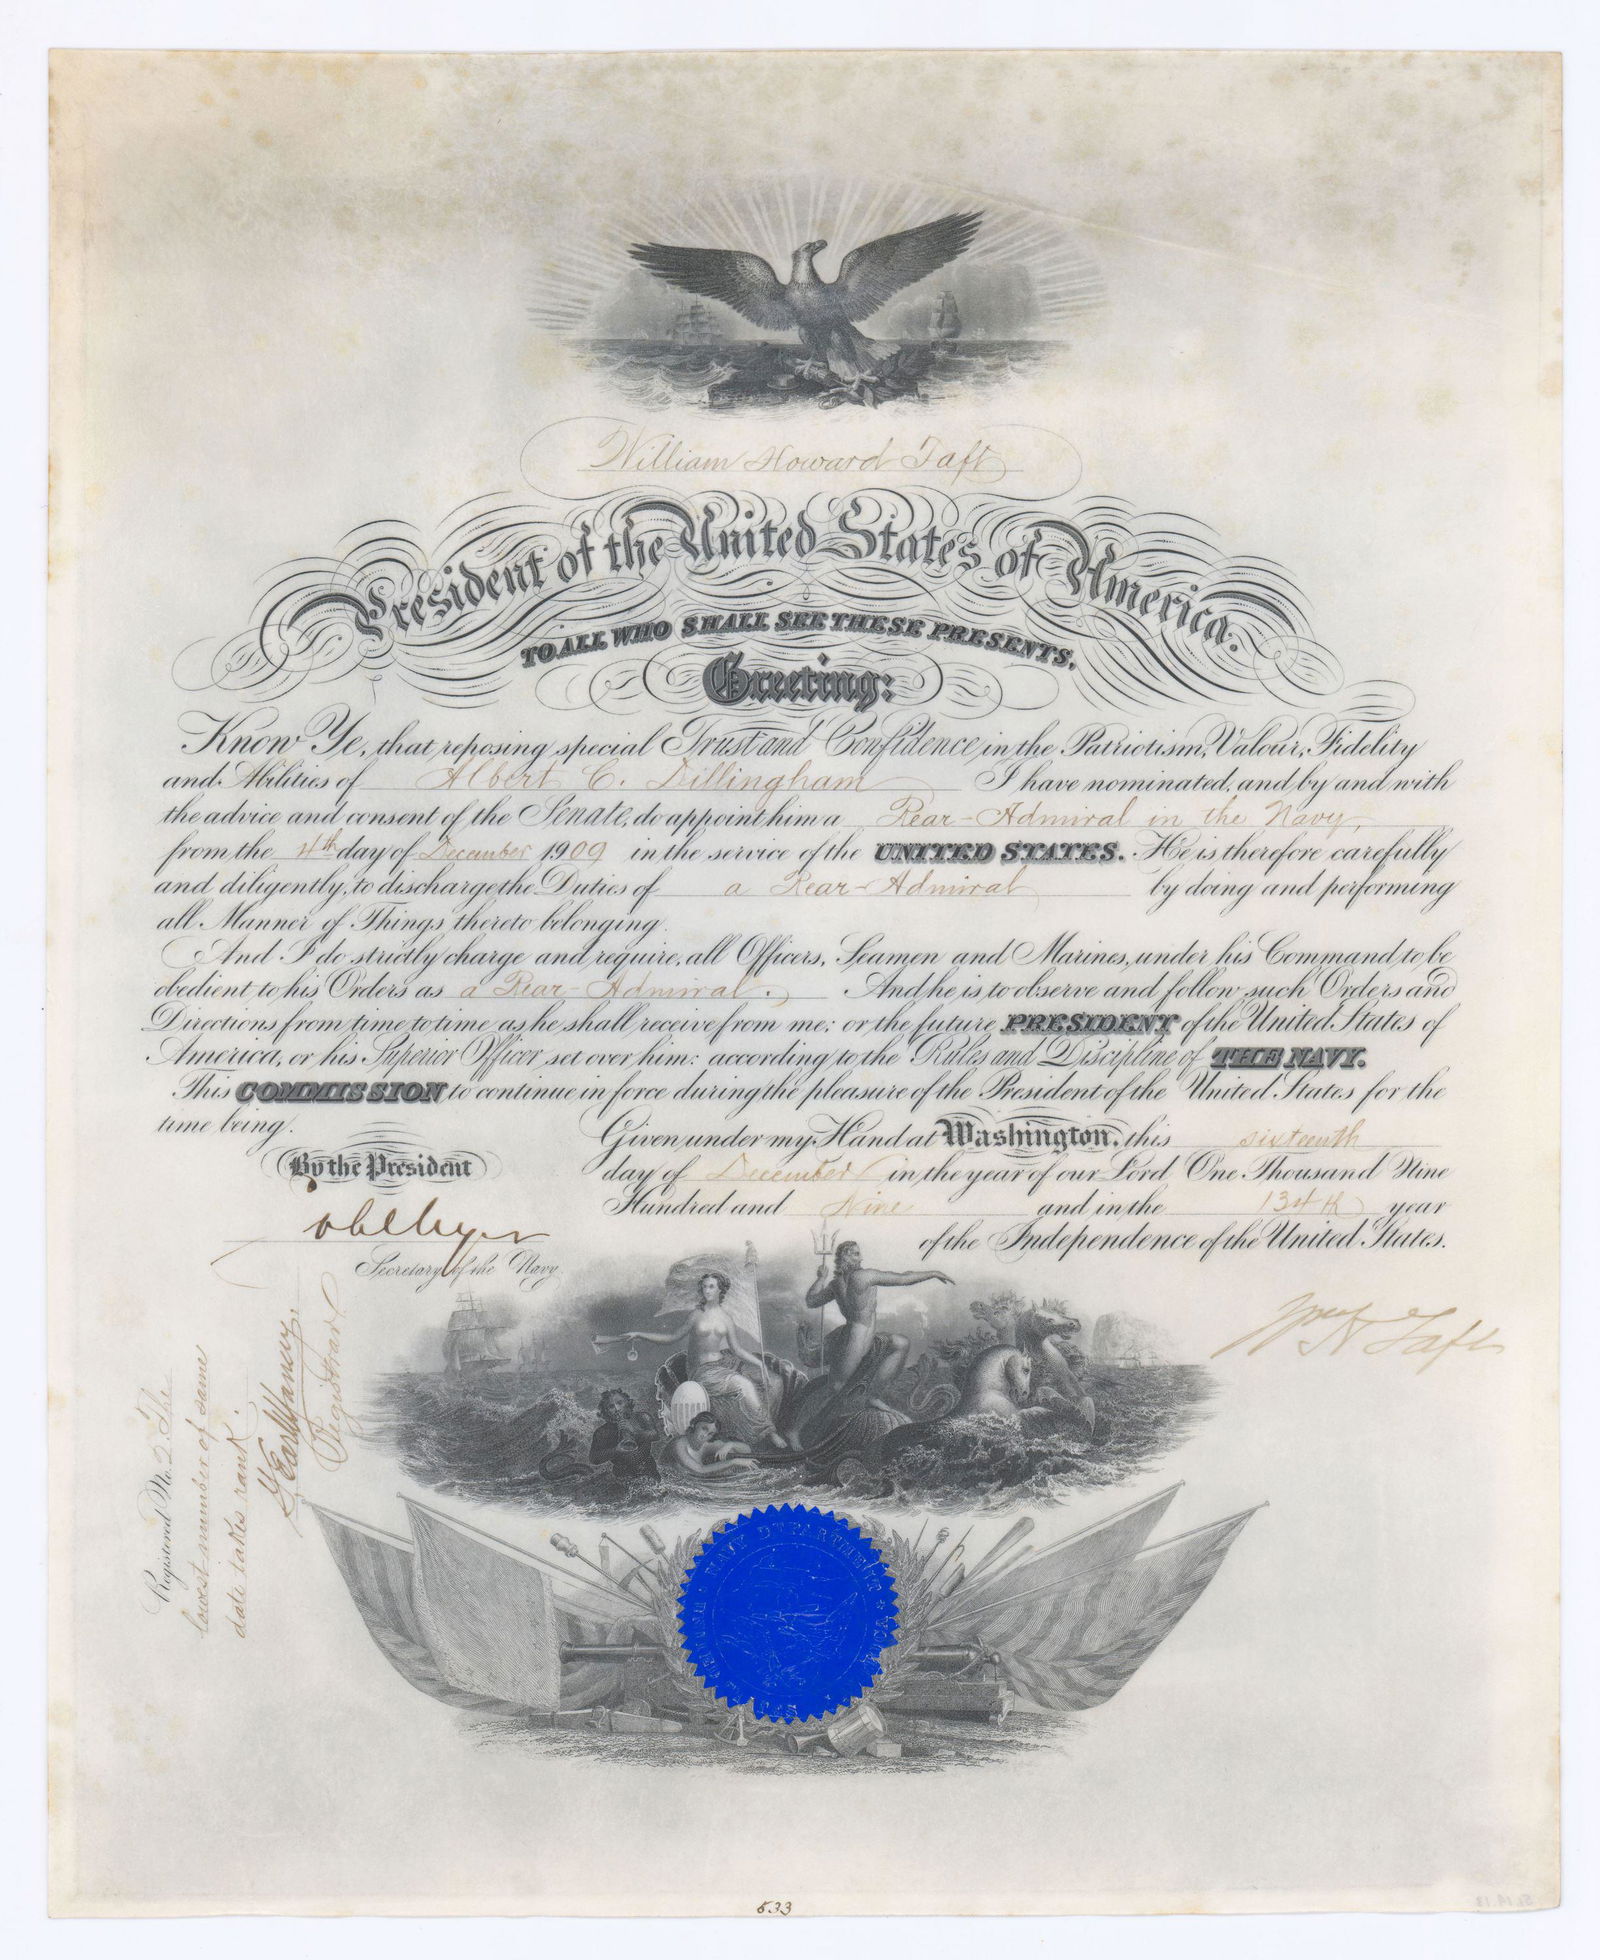 William Howard Taft
President of the United States of America.
TO ALL WHO SHALL SEE THESE PRESENTS,
Greeting:
Know Ye, that reposing special Trust and Confidence in the Patriotism, Valour, Fidelity
and Abilities of Albert C. Dillingham I have nominated, and by and with
the advice and consent of the Senate, do appoint him a Rear-Admiral in the Navy,
from the 4th day of December 1909 in the service of the UNITED STATES. He is therefore carefully
and diligently, to discharge the Duties of a Rear-Admiral by doing and performing
all Manner of Things thereto belonging.
And I do strictly charge and require, all Officers, Seamen and Marines, under his Command to be
obedient to his Orders as a Rear-Admiral. And he is to observe and follow such Orders and
Directions from time to time as he shall receive from me; or the future PRESIDENT of the United States of
America, or his Superior Officer set over him: according to the Rules and Discipline of THE NAVY.
This COMMISSION to continue in force during the pleasure of the President of the United States for the
time being.
Given under my Hand at Washington, this sixteenth
day of December in the year of our Lord One Thousand Nine
Hundred and Nine and in the 134th year
of the Independence of the United States.
By the President
Secretary of the Navy
Wm H Taft
Registered No. 2 The
lowest number of same
date takes rank.
Registrar
NAVY DEPARTMENT
UNITED STATES AMERICA
533